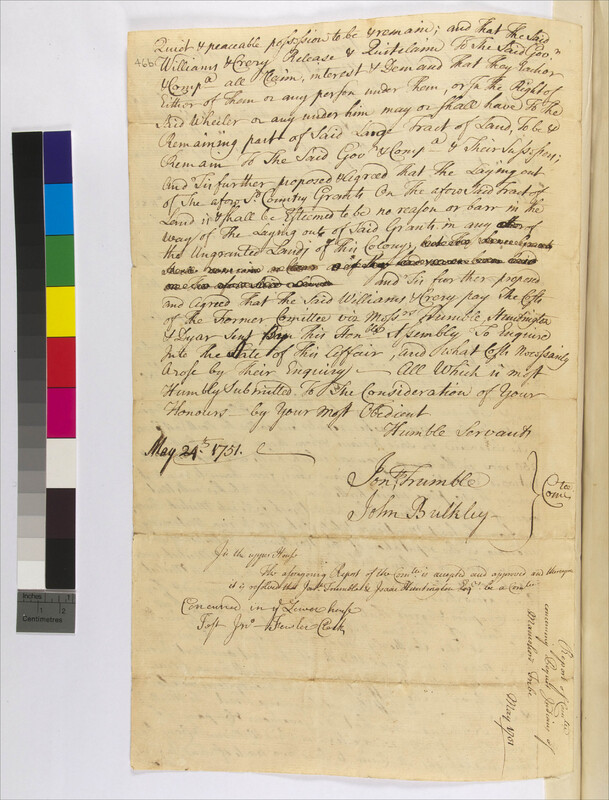 46b
Quiet & peaceable possession to be & remain; and that the Said
Williams & Crery Release & Quitclaim To The Said Govr
& Compa all Claim, interest & Demand that They &
Either of Them or any person under Them, or In the Right of
Said Wheeler or any under him may or shall have To The
Remaining part of Said Large Tract of Land, To be &
Remain To The Said Govr & Compa & Their Sucessors;
And Tis further proposed & Agreed that the Laying out
of The afors Sd Country Grants On the afore Said Tract of
Land is & shall be Esteemed to be no reason or barr in the
way of The Laying out of Said Grants in any other of
the Ungranted Lands of This Colony,
And Tis further propos'd
and Agreed that the Said Williams & Crery pay The Costs
of the Former Comittee viz Messrs Trumble, Huntington
& Dyar Sent By This Honble Assembly To Enquire
Into the State of This Affair, and What Costs Necessarily
Arose by Their Enquiry — All Which is most
Humbly Submitted To The Consideration of Your
Honours by Your most Obedient
Humble Servants
May 24th 1751.
Jon Trumble
John Bulkley
Comtee
In the upper House
The aforegoing Report of the Comtee is accepted and approved and thereupon
it is resolved that Jonth Trumble & Isaac Huntington Esqrs be a Comtee
Concurred in ye Lower house
Test Jno Fowler Clerk
Report of Comtee
concerning Pequot Indians of
Tribe
May 1751
Inches
1
2
Centimetres